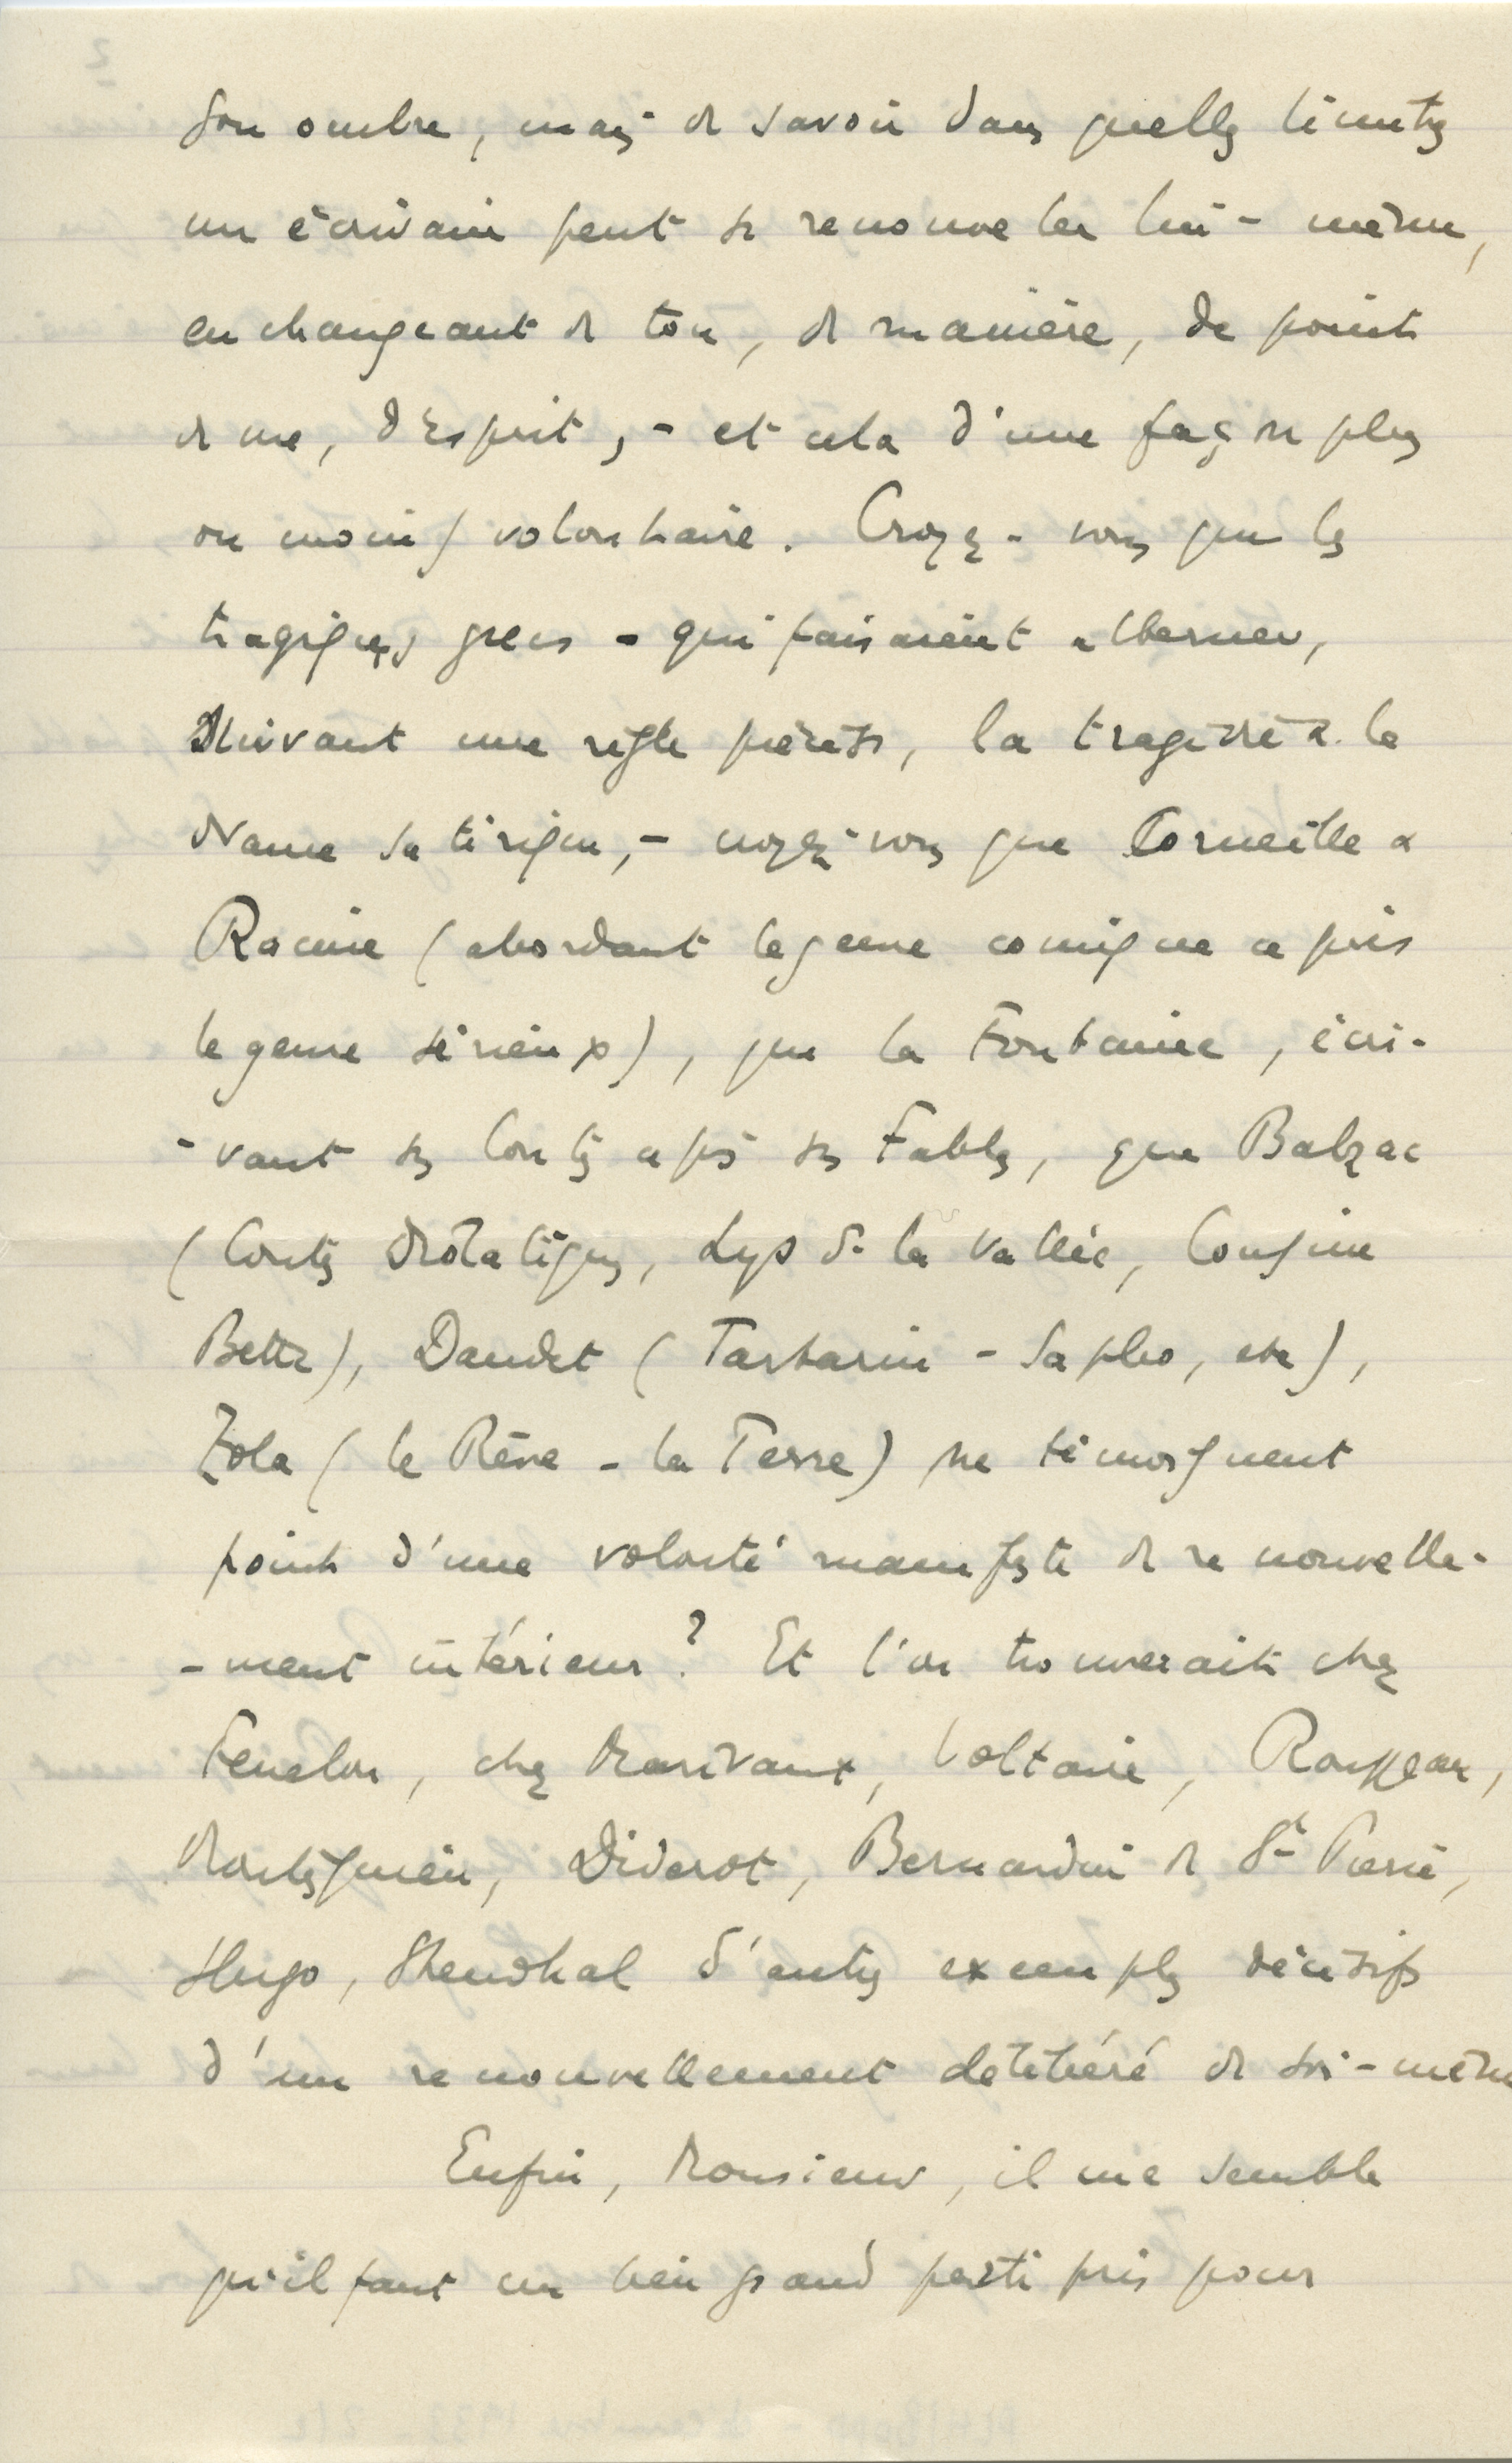 son ombre, mais de savoir dans quelles limites
un écrivain peut se renouveler lui-même,
en changeant de ton, de manière, de point
de vue, d'esprit, - et cela d'une façon plus
ou moins volontaire. Croyez-vous que les
tragiques grecs - qui faisaient alterner,
suivant une règle précise, la tragédie & le
drame satirique, - croyez-vous que Corneille &
Racine (abordant le genre comique après
le genre sérieux), que La Fontaine, écri-
-vant ses Contes après ses Fables, que Balzac
(Contes drôlatiques, Lys de la Vallée, Cousine
Bette), Daudet (Tartarin - Sapho, etc),
Zola (le Rêve - la Terre) ne témoignent
point d'une volonté manifeste de renouvelle-
-ment intérieur ? Et l'on trouverait chez
Fenelon, chez Marivaux, Voltaire, Rousseau,
Montesquieu, Diderot, Bernardin de St Pierre,
Hugo, Stendhal d'autres exemples décisifs
d'un renouvellement délibéré de soi-même
Enfin, Monsieur, il me semble
qu'il faut un bien grand parti pris pour